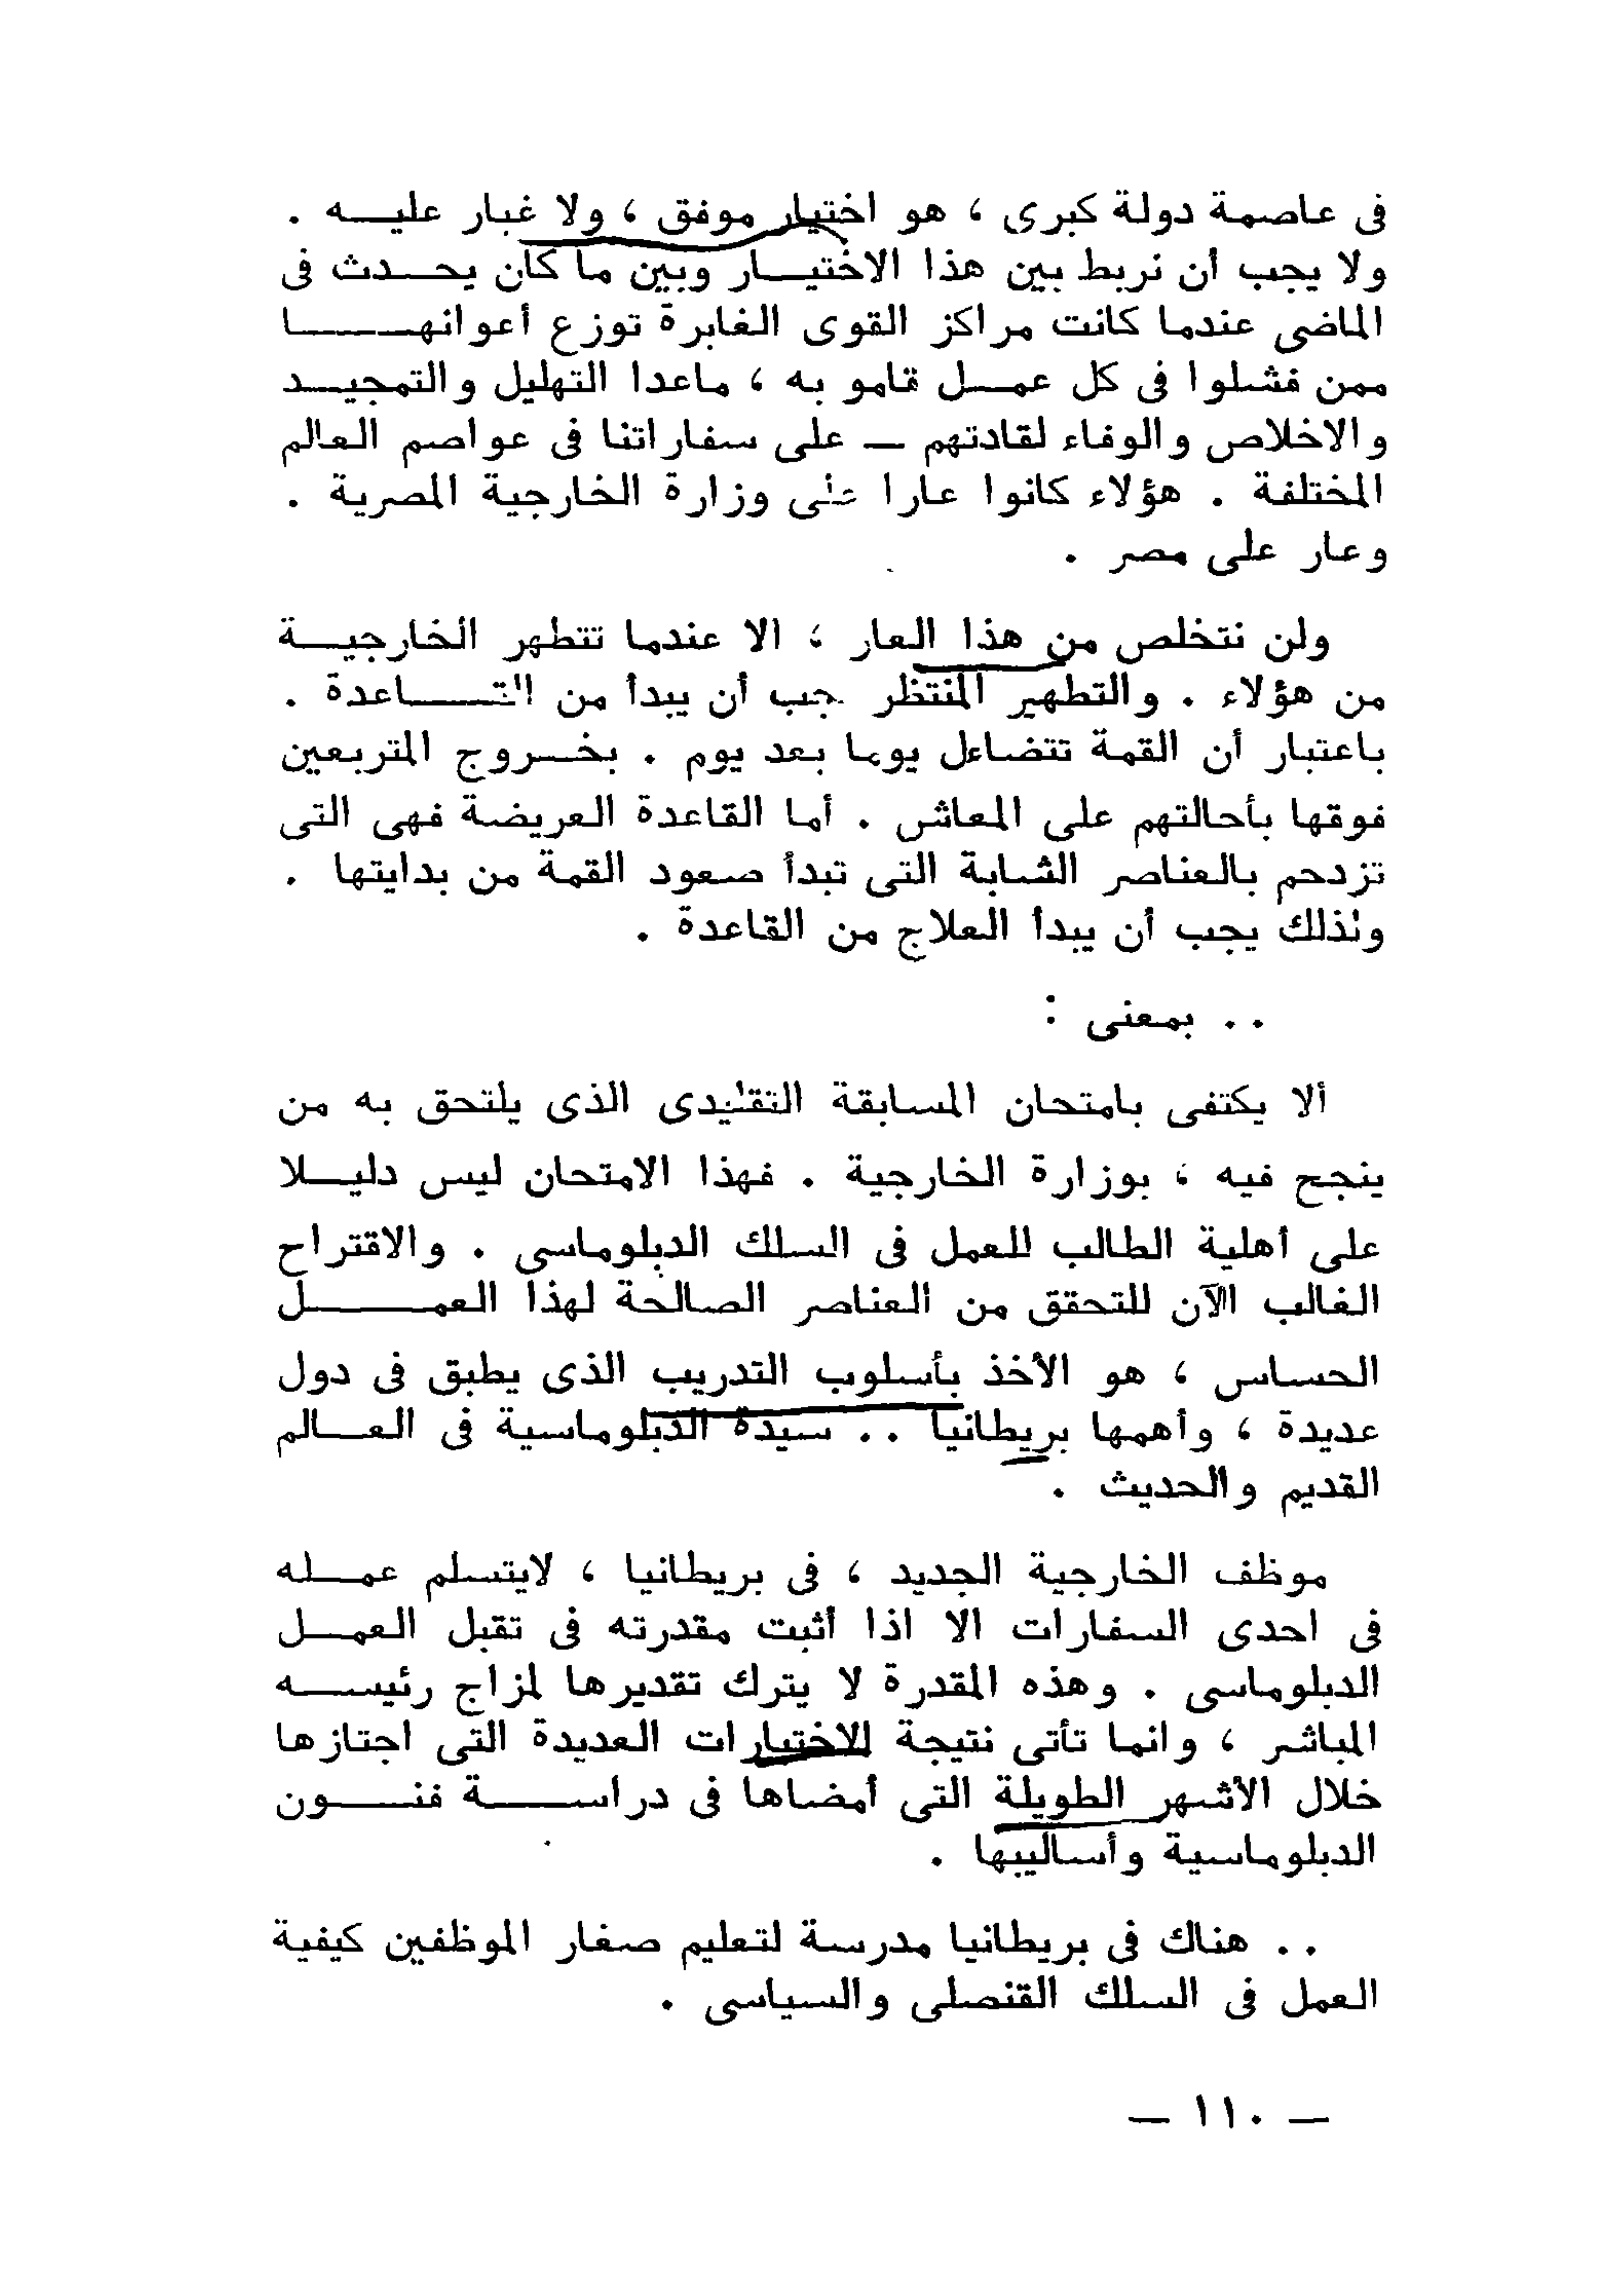 فى عاصمة دولة كبرى ، هو اختيار موفق ، ولا غبار عليه .
ولا يجب أن نربط بين هذا الاختيار وبين ما كان يحدث فى
الماضى عندما كانت مراكز القوى الغابرة توزع أعوانها
ممن فشلوا فى كل عمل قامو به ، ماعدا التهليل والتمجيد
والاخلاص والوفاء لقادتهم — على سفاراتنا فى عواصم العالم
المختلفة . هؤلاء كانوا عارا على وزارة الخارجية المصرية .
وعار على مصر .
ولن نتخلص من هذا العار ، الا عندما تتطهر الخارجية
من هؤلاء . والتطهير المنتظر يجب أن يبدأ من القاعدة .
باعتبار أن القمة تتضاءل يوما بعد يوم . بخروج المتربعين
فوقها بأحالتهم على المعاش . أما القاعدة العريضة فهى التى
تزدحم بالعناصر الشابة التى تبدأ صعود القمة من بدايتها .
ولذلك يجب أن يبدأ العلاج من القاعدة .
. . بمعنى :
ألا يكتفى بامتحان المسابقة التقليدى الذى يلتحق به من
ينجح فيه ، بوزارة الخارجية . فهذا الامتحان ليس دليلا
على أهلية الطالب للعمل فى السلك الدبلوماسى . والاقتراح
الغالب الآن للتحقق من العناصر الصالحة لهذا العمل
الحساس ، هو الأخذ بأسلوب التدريب الذى يطبق فى دول
عديدة ، وأهمها بريطانيا . . سيدة الدبلوماسية فى العالم
القديم والحديث .
موظف الخارجية الجديد ، فى بريطانيا ، لايتسلم عمله
فى احدى السفارات الا اذا أثبت مقدرته فى تقبل العمل
الدبلوماسى . وهذه المقدرة لا يترك تقديرها لمزاج رئيسه
المباشر ، وانما تأتى نتيجة للاختبارات العديدة التى اجتازها
خلال الأشهر الطويلة التى أمضاها فى دراسة فنون
الدبلوماسية وأساليبها .
. . هناك فى بريطانيا مدرسة لتعليم صغار الموظفين كيفية
العمل فى السلك القنصلى والسياسى .
— ١١٠ —